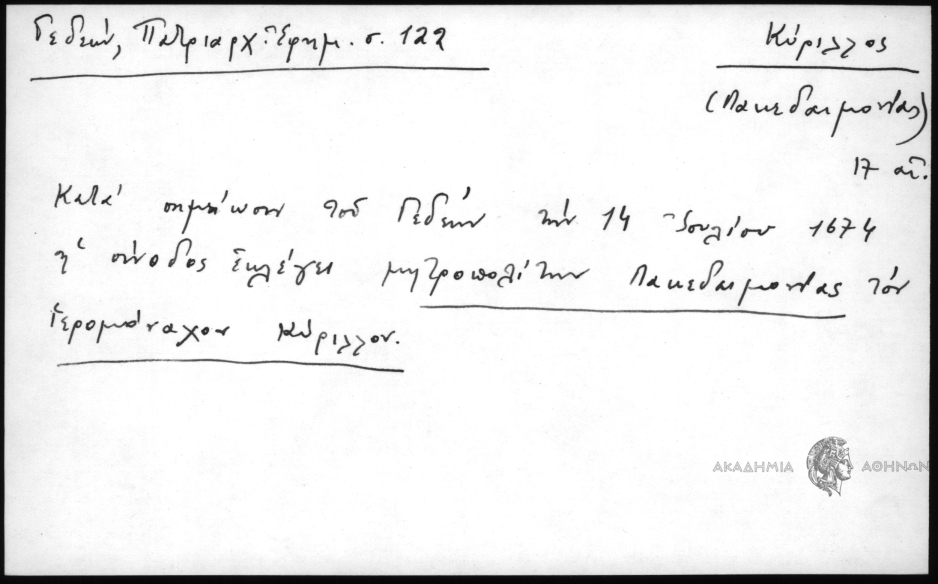 Γεδεών, Πατριαρχ. Ἐφημ. σ. 122
Κύριλλος
(Λακεδαιμονίας)
17 αἰ.
Κατά σημείωσιν τοῦ Γεδεών τήν 14 Ἰουλίου 1674
ἡ σύνοδος ἐκλέγει μητροπολίτην Λακεδαιμονίας τόν
ἱερομόναχον Κύριλλον.
ΑΚΑΔΗΜΙΑ ΑΘΗΝΩΝ